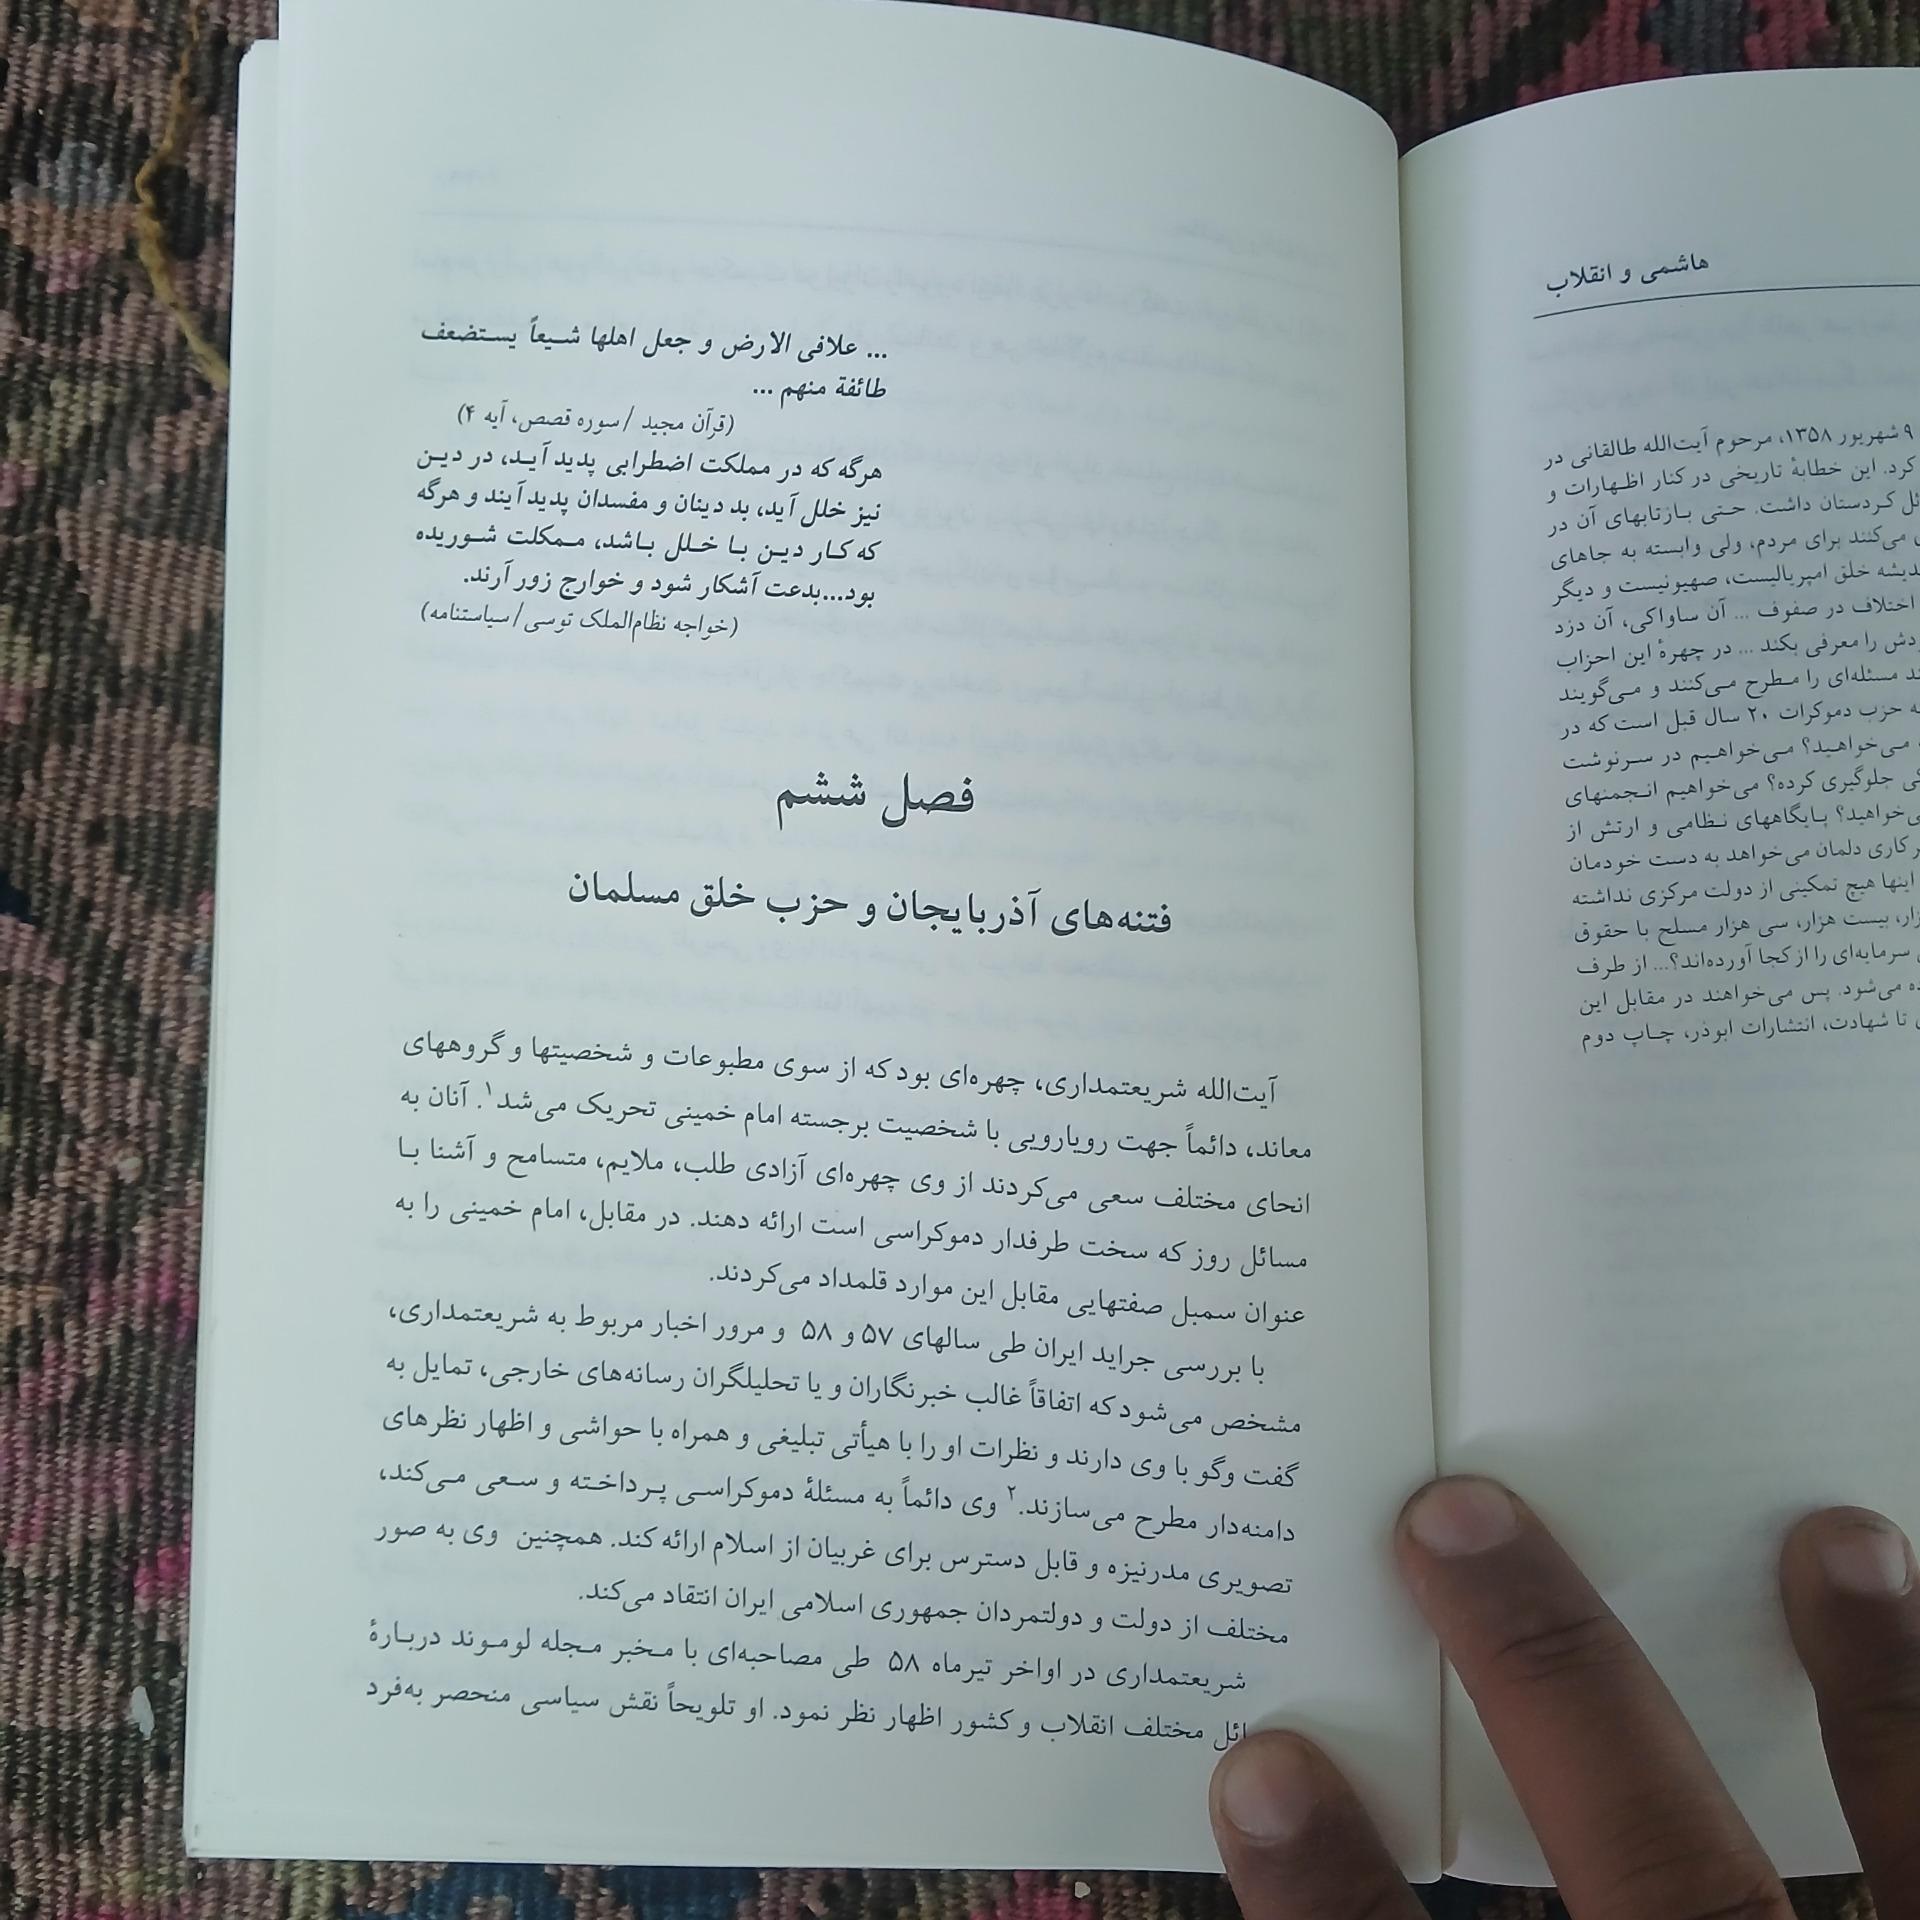 هاشمی و انقلاب
۹ شهریور ۱۳۵۸، مرحوم آیت‌الله طالقانی در
کرد. این خطابهٔ تاریخی در کنار اظهارات و
ئل کردستان داشت. حتی بازتابهای آن در
می‌کنند برای مردم، ولی وابسته به جاهای
ندیشه خلق امپریالیست، صهیونیست و دیگر
اختلاف در صفوف ... آن ساواکی، آن دزد
ردش را معرفی بکند ... در چهرهٔ این احزاب
ند مسئله‌ای را مطرح می‌کنند و می‌گویند
ه حزب دموکرات ۲۰ سال قبل است که در
می‌خواهید؟ می‌خواهیم در سرنوشت
کی جلوگیری کرده؟ می‌خواهیم انجمنهای
ی‌خواهید؟ پایگاههای نظامی و ارتش از
رکاری دلمان می‌خواهد به دست خودمان
اینها هیچ تمکینی از دولت مرکزی نداشته
زار، بیست هزار، سی هزار مسلح با حقوق
سرمایه‌ای را از کجا آورده‌اند؟... از طرف
ده می‌شود. پس می‌خواهند در مقابل این
تا شهادت، انتشارات ابوذر، چاپ دوم
... علافی الارض و جعل اهلها شیعاً یستضعف
طائفة منهم ...
(قرآن مجید / سوره قصص، آیه ۴)
هرگه که در مملکت اضطرابی پدید آید، در دین
نیز خلل آید، بد دینان و مفسدان پدید آیند و هرگه
که کار دین با خلل باشد، ممکلت شوریده
بود...بدعت آشکار شود و خوارج زور آرند.
(خواجه نظام‌الملک توسی/سیاستنامه)
فصل ششم
فتنه‌های آذربایجان و حزب خلق مسلمان
آیت‌الله شریعتمداری، چهره‌ای بود که از سوی مطبوعات و شخصیتها و گروههای
معاند، دائماً جهت رویارویی با شخصیت برجسته امام خمینی تحریک می‌شد۱. آنان به
انحای مختلف سعی می‌کردند از وی چهره‌ای آزادی طلب، ملایم، متسامح و آشنا با
مسائل روز که سخت طرفدار دموکراسی است ارائه دهند. در مقابل، امام خمینی را به
عنوان سمبل صفتهایی مقابل این موارد قلمداد می‌کردند.
با بررسی جراید ایران طی سالهای ۵۷ و ۵۸ و مرور اخبار مربوط به شریعتمداری،
مشخص می‌شود که اتفاقاً غالب خبرنگاران و یا تحلیلگران رسانه‌های خارجی، تمایل به
گفت وگو با وی دارند و نظرات او را با هیأتی تبلیغی و همراه با حواشی و اظهار نظرهای
دامنه‌دار مطرح می‌سازند.۲ وی دائماً به مسئلهٔ دموکراسی پرداخته و سعی می‌کند،
تصویری مدرنیزه و قابل دسترس برای غربیان از اسلام ارائه کند. همچنین وی به صور
مختلف از دولت و دولتمردان جمهوری اسلامی ایران انتقاد می‌کند.
شریعتمداری در اواخر تیرماه ۵۸ طی مصاحبه‌ای با مخبر مجله لوموند دربارهٔ
ائل مختلف انقلاب و کشور اظهار نظر نمود. او تلویحاً نقش سیاسی منحصر به‌فرد